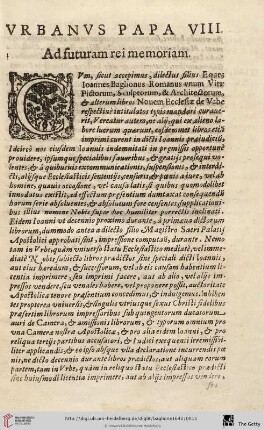 VRBANVS PAPA VIII.
Ad futuram rei memoriam.
CVm, sicut accepimus, dilectus filius Eques
Ioannes Baglionus Romanus vnum Vitæ
Pictorum, Sculptorum, & Architectorum,
& alterum libros Nouem Ecclesiæ de Vrbe
respectiuè intitulatos typis mandari curaue-
rit, Vereatur autem, ne alij, qui ex alieno la-
bore lucrum quærunt, eosdem libros etiã
imprimi curent in dicti Ioannis præiudiciũ,
Idcircò nos eiusdem Ioannis indemnitati in præmissis opportunè
prouidere, ipsumque specialibus fauoribus, & gratijs prosequi vo-
lentes; & à quibusuis excommunicationis, suspensionis, & interdi-
cti, alijsque Ecclesiasticis sententijs, censuris, & pœnis à iure, vel ab
homine, quauis occasione, vel causa latis, si quibus quomodolibet
innodatus existit, ad effectum præsentium dumtaxat consequendũ
harum serie absoluentes, & absolutum fore censentes, supplicationi-
bus illius nomine Nobis super hoc humiliter porrectis inclinati.
Eidem Ioanni vt decennio proximo durante, à primæua dictorum
librorum, dummodo antea à dilecto filio Magistro Sacri Palatij
Apostolici approbati sint, impressione computando, durante. Nemo
tam in Vrbe, quàm vniuerso Statu Ecclesiastico mediatè, vel imme-
diatè Nobis subiecto libros prædictos sine speciali dicti Ioannis,
aut eius hæredum, & successorum, vel ab eis causam habentium li-
centia imprimere, seu imprimi facere, aut ab alio, vel alijs im-
pressos vendere, seu venales habere, vel proponere possit, auctoritate
Apostolica tenore præsentium concedimus, & indulgemus. Inhiben-
tes propterea vniuersis, & singulis vtriusque sexus Christi fidelibus
præsertim librorum impressoribus sub quingentorum ducatorum
auri de Camera, & amissionis librorum, & typorum omnium pro
vna Camera nostra Apostolica, & pro alia eidem Ioanni, & pro
reliqua tertijs partibus accusatori, & Iudici exequenti irremissibi-
liter applicandis, & eo ipso absque vlla declaratione incurrendis pœ-
nis, ne dicto decennio durante libros prædictos aut aliquam eorum
partem, tam in Vrbe, quàm in reliquo Statu Ecclesiastico prædictis
sine huiusmodi licentia imprimere, aut ab alijs impressos vendere
seu
http://digi.ub.uni-heidelberg.de/diglit/baglione1642/0011
© Universitätsbibliothek Heidelberg
The Getty